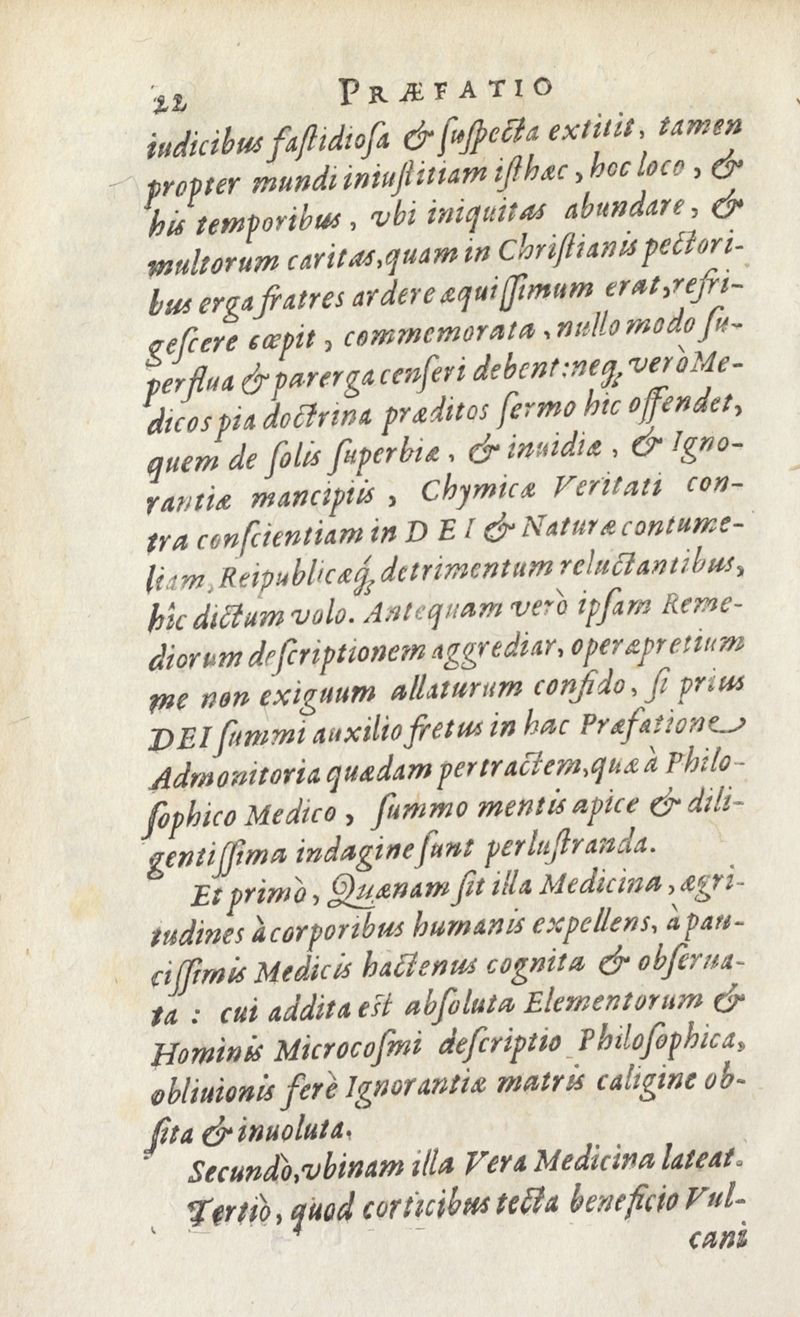 22 PRÆFATIO
iudicibus fastidiosa & suspecta extitit, tamen
propter mundi iniustitiam isthæc, hoc loco, &
his temporibus, vbi iniquitas abundare, &
multorum caritas, quam in Christianis pectori-
bus erga fratres ardere æquissimum erat, refri-
gescere cœpit, commemorata, nullo modo su-
perflua & parerga censeri debent: neq; verò Me-
dicos pia doctrina præditos sermo hic offendet,
quem de solis superbiæ, & inuidiæ, & Igno-
rantiæ mancipiis, Chymicæ Veritati con-
tra conscientiam in DEI & Naturæ contume-
liam, Reipublicæq́; detrimentum reluctantibus,
hîc dictum volo. Antequam verò ipsam Reme-
diorum descriptionem aggrediar, operæpretium
me non exiguum allaturum confido, si prius
DEI summi auxilio fretus in hac Præfatione
Admonitoria quædam pertractem, quæ à Philo-
sophico Medico, summo mentis apice & dili-
gentissima indagine sunt perlustranda.
Et primò, Quænam sit illa Medicina, ægri-
tudines à corporibus humanis expellens, à pau-
cissimis Medicis hactenus cognita & obserua-
ta: cui addita est absoluta Elementorum &
Hominis Microcosmi descriptio Philosophica,
obliuionis ferè Ignorantiæ matris caligine ob-
sita & inuoluta.
Secundò, vbinam illa Vera Medicina lateat.
Tertiò, quod corticibus tecta beneficio Vul-
cani